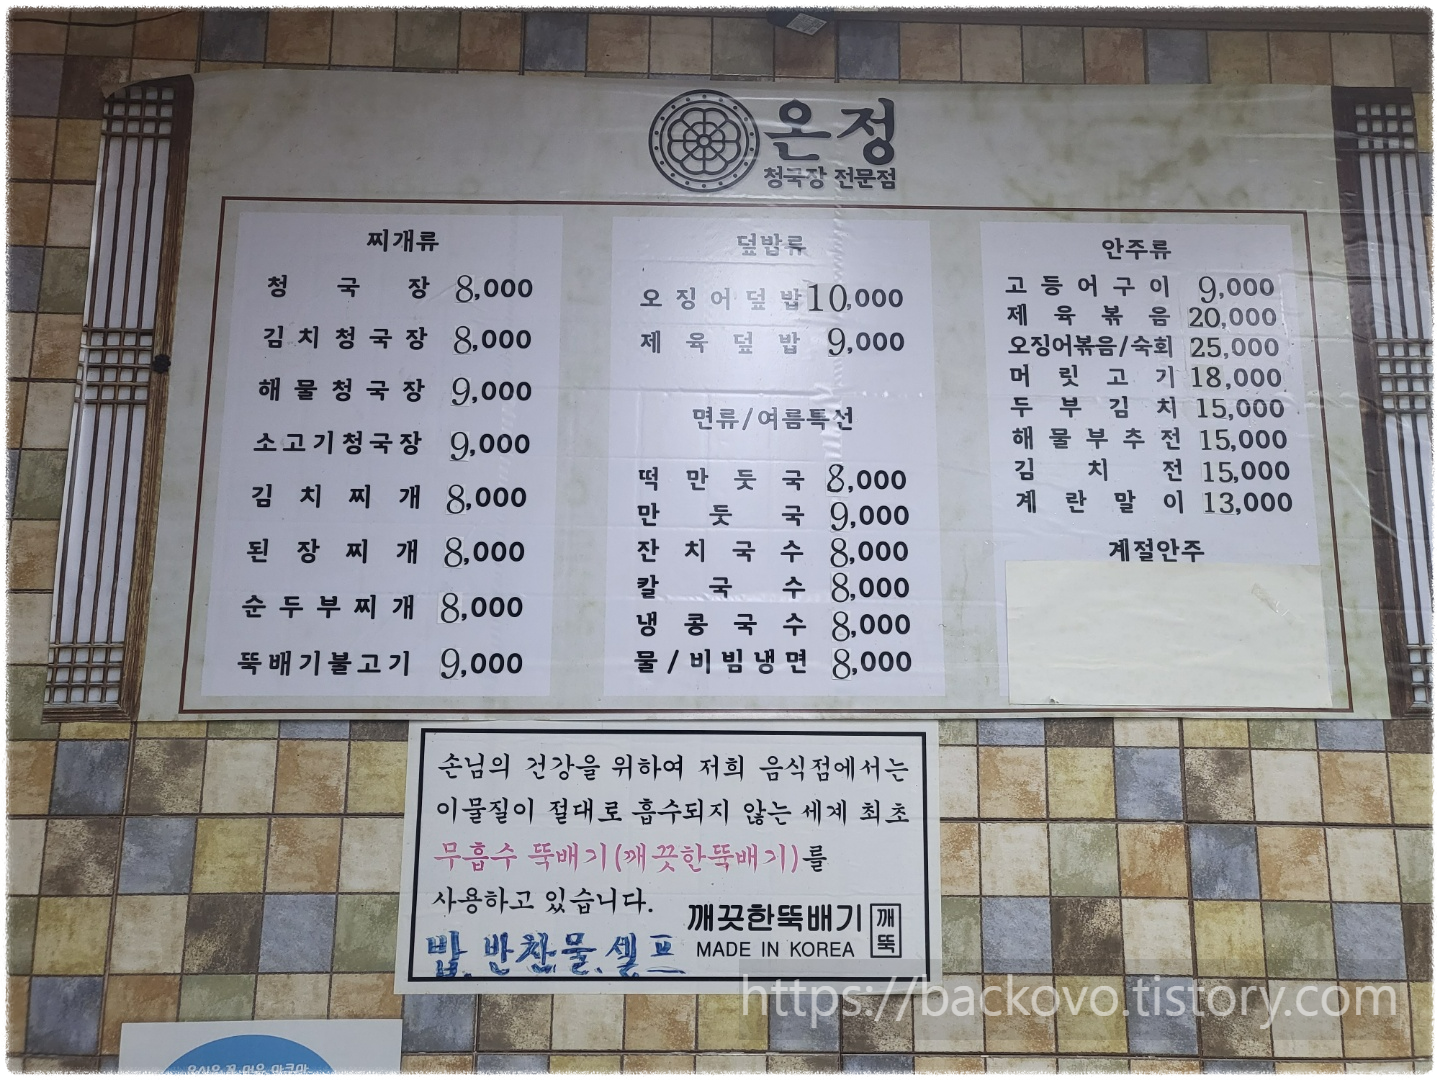 온정
청국장 전문점
찌개류
청국장 8,000
김치청국장 8,000
해물청국장 9,000
소고기청국장 9,000
김치찌개 8,000
된장찌개 8,000
순두부찌개 8,000
뚝배기불고기 9,000
덮밥류
오징어덮밥 10,000
제육덮밥 9,000
면류/여름특선
떡만둣국 8,000
만둣국 9,000
잔치국수 8,000
칼국수 8,000
냉콩국수 8,000
물/비빔냉면 8,000
안주류
고등어구이 9,000
제육볶음 20,000
오징어볶음/숙회 25,000
머릿고기 18,000
두부김치 15,000
해물부추전 15,000
김치전 15,000
계란말이 13,000
계절안주
손님의 건강을 위하여 저희 음식점에서는
이물질이 절대로 흡수되지 않는 세계 최초
무흡수 뚝배기(깨끗한뚝배기)를
사용하고 있습니다.
깨끗한뚝배기 깨뚝
MADE IN KOREA
밥.반찬물.셀프
https://backovo.tistory.com